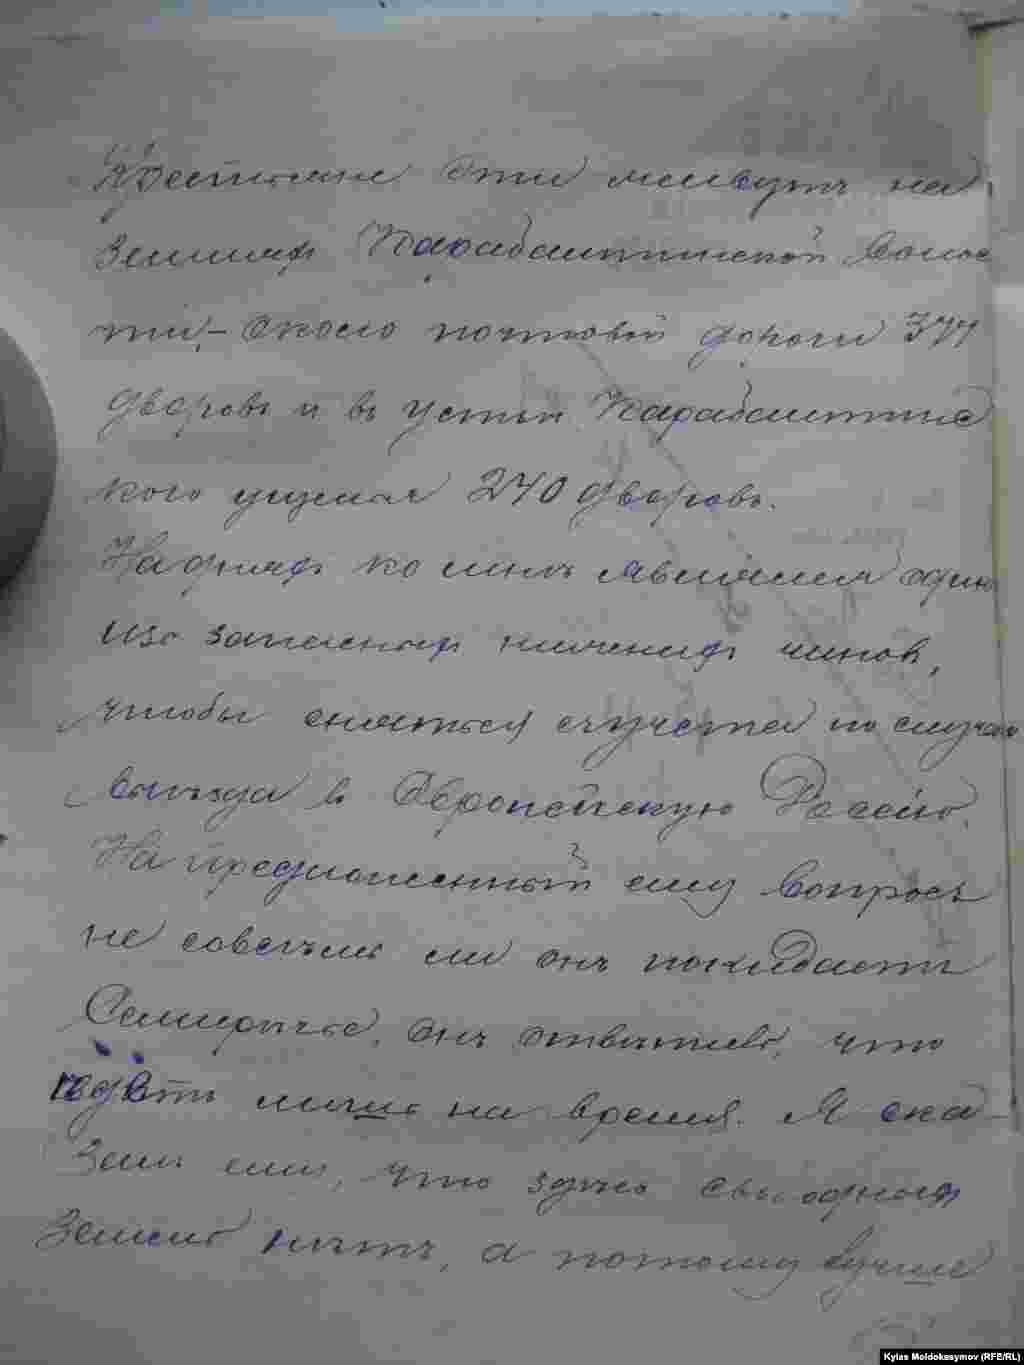 Крестьяне эти живутъ на
землях Карабалтинской волос
ти, - около почтовой дороги 377
дворовъ и въ устьи Карабалтинс
кого ущелья 240 дворовъ.
На дняхъ ко мнѣ явился один
изъ запасных нижних чинов,
чтобы сняться с учета по случаю
выезда в Европейскую Россію.
На предложенный ему вопросъ
не совсѣмъ ли онъ покидаетъ
Семирѣчье, онъ отвѣтилъ, что
едетъ лишь на время. Я ска-
залъ ему, что здѣсь свободных
земель нѣтъ, а потому лучше
Kylas Moldokasymov (RFE/RL)